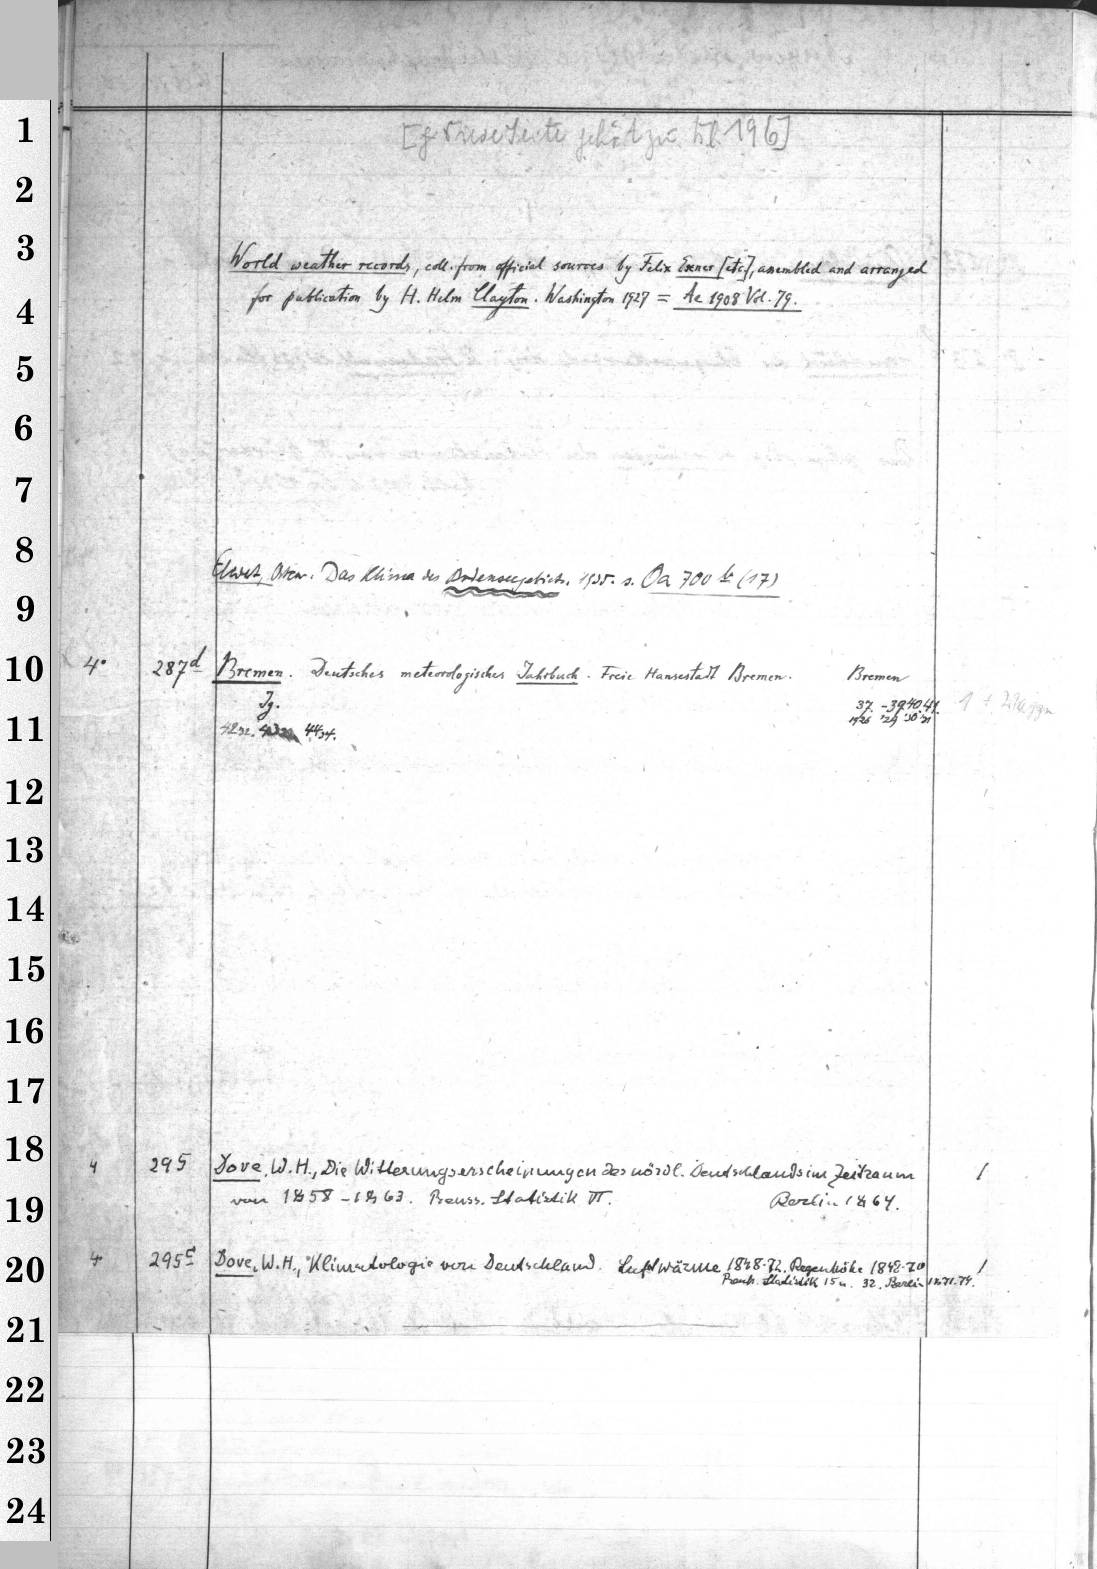 1
[diese Seite gehört zu Bl. 196]
2
3
World weather records, coll. from official sources by Felix Exner [etc], assembled and arranged
4
for publication by H. Helm Clayton. Washington 1927 = Ae 1908 Vol. 79.
5
6
7
8
Das Klima des Bodenseegebiets. 1935. s. Oa 700 (17)
9
10
4° 287d Bremen. Deutsches meteorologisches Jahrbuch. Freie Hansestadt Bremen. Bremen
Jg. 37. - 39.40.41.
11
42 44/34. 1926 '29 '30 '31
12
13
14
15
16
17
18
4 295 Dove, W.H., Die Witterungserscheinungen des nördl. Deutschlands im Zeitraum 1
19
von 1858 - 1863. Preuss. Statistik VI. Berlin 1864.
20
4 295c Dove, W.H., Klimatologie von Deutschland. Luftwärme 1848-72. Regenhöhe 1848-70 1
Preuß. Statistik 15 u. 32. Berlin 1871.74.
21
22
23
24